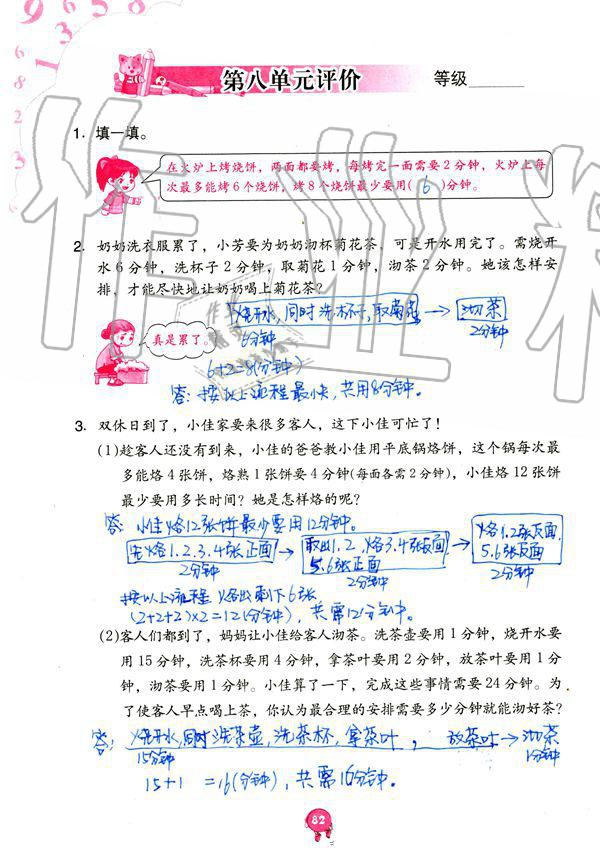 第八单元评价 等级
1. 填一填。
在火炉上烤烧饼，两面都要烤，每烤完一面需要2分钟，火炉上每
次最多能烤6个烧饼，烤8个烧饼最少要用( 6 )分钟。
2. 奶奶洗衣服累了，小芳要为奶奶沏杯菊花茶，可是开水用完了。需烧开
水6分钟，洗杯子2分钟，取菊花1分钟，沏茶2分钟。她该怎样安
排，才能尽快地让奶奶喝上菊花茶？
烧开水，同时洗杯子，取菊花 → 沏茶
6分钟 2分钟
真是累了。
6+2=8(分钟)
答：按以上流程最快，共用8分钟。
3. 双休日到了，小佳家要来很多客人，这下小佳可忙了！
(1)趁客人还没有到来，小佳的爸爸教小佳用平底锅烙饼，这个锅每次最
多能烙4张饼，烙熟1张饼要4分钟(每面各需2分钟)，小佳烙12张饼
最少要用多长时间？她是怎样烙的呢？
答：小佳烙12张饼最少要用12分钟。
先烙1.2.3.4张正面 → 取出1.2，烙3.4张反面 5.6张正面 → 烙1.2张反面，5.6张反面
2分钟 2分钟 2分钟
按以上流程 烙出剩下6张
(2+2+2)×2=12(分钟)，共需12分钟。
(2)客人们都到了，妈妈让小佳给客人沏茶。洗茶壶要用1分钟，烧开水要
用15分钟，洗茶杯要用4分钟，拿茶叶要用2分钟，放茶叶要用1分
钟，沏茶要用1分钟。小佳算了一下，完成这些事情需要24分钟。为
了使客人早点喝上茶，你认为最合理的安排需要多少分钟就能沏好茶？
答：烧开水，同时洗茶壶，洗茶杯，拿茶叶，放茶叶→沏茶
15分钟 1分钟
15+1 =16(分钟)，共需16分钟。
82